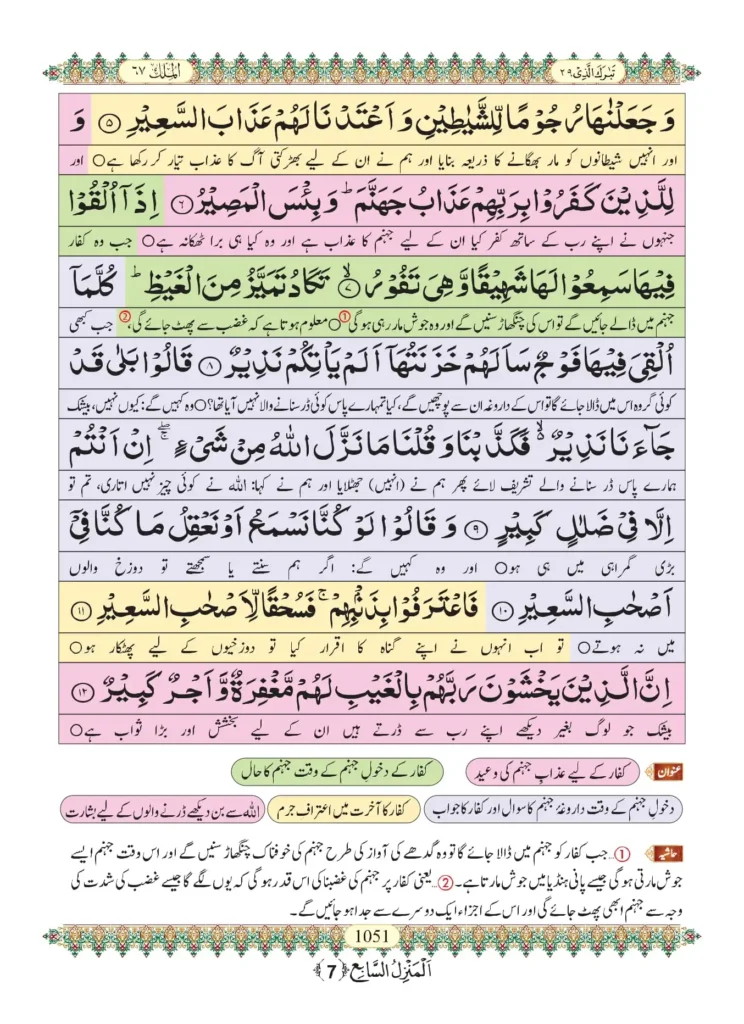 تبٰرک الذی ۲۹
الملک ۶۷
وَ جَعَلْنٰهَا رُجُوْمًا لِّلشَّیٰطِیْنِ وَ اَعْتَدْنَا لَهُمْ عَذَابَ السَّعِیْرِ ۵ وَ
اور انہیں شیطانوں کو مار بھگانے کا ذریعہ بنایا اور ہم نے ان کے لیے بھڑکتی آگ کا عذاب تیار کر رکھا ہے○ اور
لِلَّذِیْنَ كَفَرُوْا بِرَبِّهِمْ عَذَابُ جَهَنَّمَ ؕ وَ بِئْسَ الْمَصِیْرُ ۶ اِذَاۤ اُلْقُوْا
جنہوں نے اپنے رب کے ساتھ کفر کیا ان کے لیے جہنم کا عذاب ہے اور وہ کیا ہی برا ٹھکانہ ہے○ جب وہ کفار
فِیْهَا سَمِعُوْا لَهَا شَهِیْقًا وَّ هِیَ تَفُوْرُ ۙ۷ تَكَادُ تَمَیَّزُ مِنَ الْغَیْظِ ؕ كُلَّمَاۤ
جہنم میں ڈالے جائیں گے تو اس کی چنگھاڑ سنیں گے اور وہ جوش مار رہی ہوگی①○ معلوم ہوتا ہے کہ غضب سے پھٹ جائے گی،② جب کبھی
اُلْقِیَ فِیْهَا فَوْجٌ سَاَلَهُمْ خَزَنَتُهَاۤ اَلَمْ یَاْتِكُمْ نَذِیْرٌ ۸ قَالُوْا بَلٰی قَدْ
کوئی گروہ اس میں ڈالا جائے گا تو اس کے داروغہ ان سے پوچھیں گے، کیا تمہارے پاس کوئی ڈر سنانے والا نہیں آیا تھا؟○ وہ کہیں گے: کیوں نہیں، بیشک
جَآءَنَا نَذِیْرٌ ۬ۙ فَكَذَّبْنَا وَ قُلْنَا مَا نَزَّلَ اللّٰهُ مِنْ شَیْءٍ ۚۖ اِنْ اَنْتُمْ
ہمارے پاس ڈر سنانے والے تشریف لائے پھر ہم نے (انہیں) جھٹلایا اور ہم نے کہا: اللہ نے کوئی چیز نہیں اتاری، تم تو
اِلَّا فِیْ ضَلٰلٍ كَبِیْرٍ ۹ وَ قَالُوْا لَوْ كُنَّا نَسْمَعُ اَوْ نَعْقِلُ مَا كُنَّا فِیْۤ
بڑی گمراہی میں ہی ہو○ اور وہ کہیں گے: اگر ہم سنتے یا سمجھتے تو دوزخ والوں
اَصْحٰبِ السَّعِیْرِ ۱۰ فَاعْتَرَفُوْا بِذَنْۢبِهِمْ ۚ فَسُحْقًا لِّاَصْحٰبِ السَّعِیْرِ ۱۱
میں نہ ہوتے○ تو اب انہوں نے اپنے گناہ کا اقرار کیا تو دوزخیوں کے لیے پھٹکار ہو○
اِنَّ الَّذِیْنَ یَخْشَوْنَ رَبَّهُمْ بِالْغَیْبِ لَهُمْ مَّغْفِرَةٌ وَّ اَجْرٌ كَبِیْرٌ ۱۲
بیشک جو لوگ بغیر دیکھے اپنے رب سے ڈرتے ہیں ان کے لیے بخشش اور بڑا ثواب ہے○
عنوان کفار کے لیے عذابِ جہنم کی وعید کفار کے دخولِ جہنم کے وقت جہنم کا حال
دخولِ جہنم کے وقت داروغۂ جہنم کا سوال اور کفار کا جواب کفار کا آخرت میں اعترافِ جرم اللہ سے بن دیکھے ڈرنے والوں کے لیے بشارت
حاشیہ ①...جب کفار کو جہنم میں ڈالا جائے گا تو وہ گدھے کی آواز کی طرح جہنم کی خوفناک چنگھاڑ سنیں گے اور اس وقت جہنم ایسے
جوش مارتی ہوگی جیسے پانی ہنڈیا میں جوش مارتا ہے۔ ②...یعنی کفار پر جہنم کی غضبناکی اس قدر ہوگی کہ یوں لگے گا جیسے غضب کی شدت کی
وجہ سے جہنم ابھی پھٹ جائے گی اور اس کے اجزاء ایک دوسرے سے جدا ہو جائیں گے۔
1051
اَلْمَنْزِلُ السَّابِع ﴿7﴾